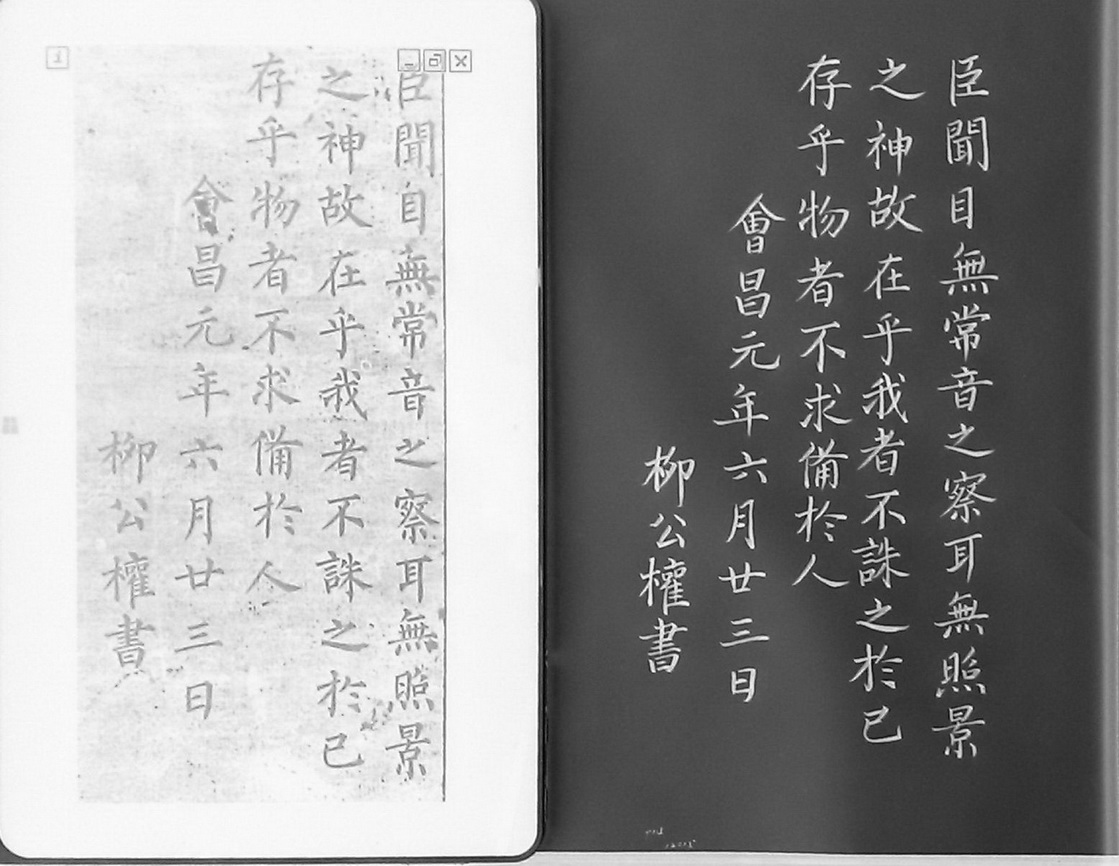 臣聞自無常音之察耳無照景
之神故在乎我者不誅之於已
存乎物者不求備於人
會昌元年六月廿三日
柳公權書
臣聞目無常音之察耳無照景
之神故在乎我者不誅之於已
存乎物者不求備於人
會昌元年六月廿三日
柳公權書